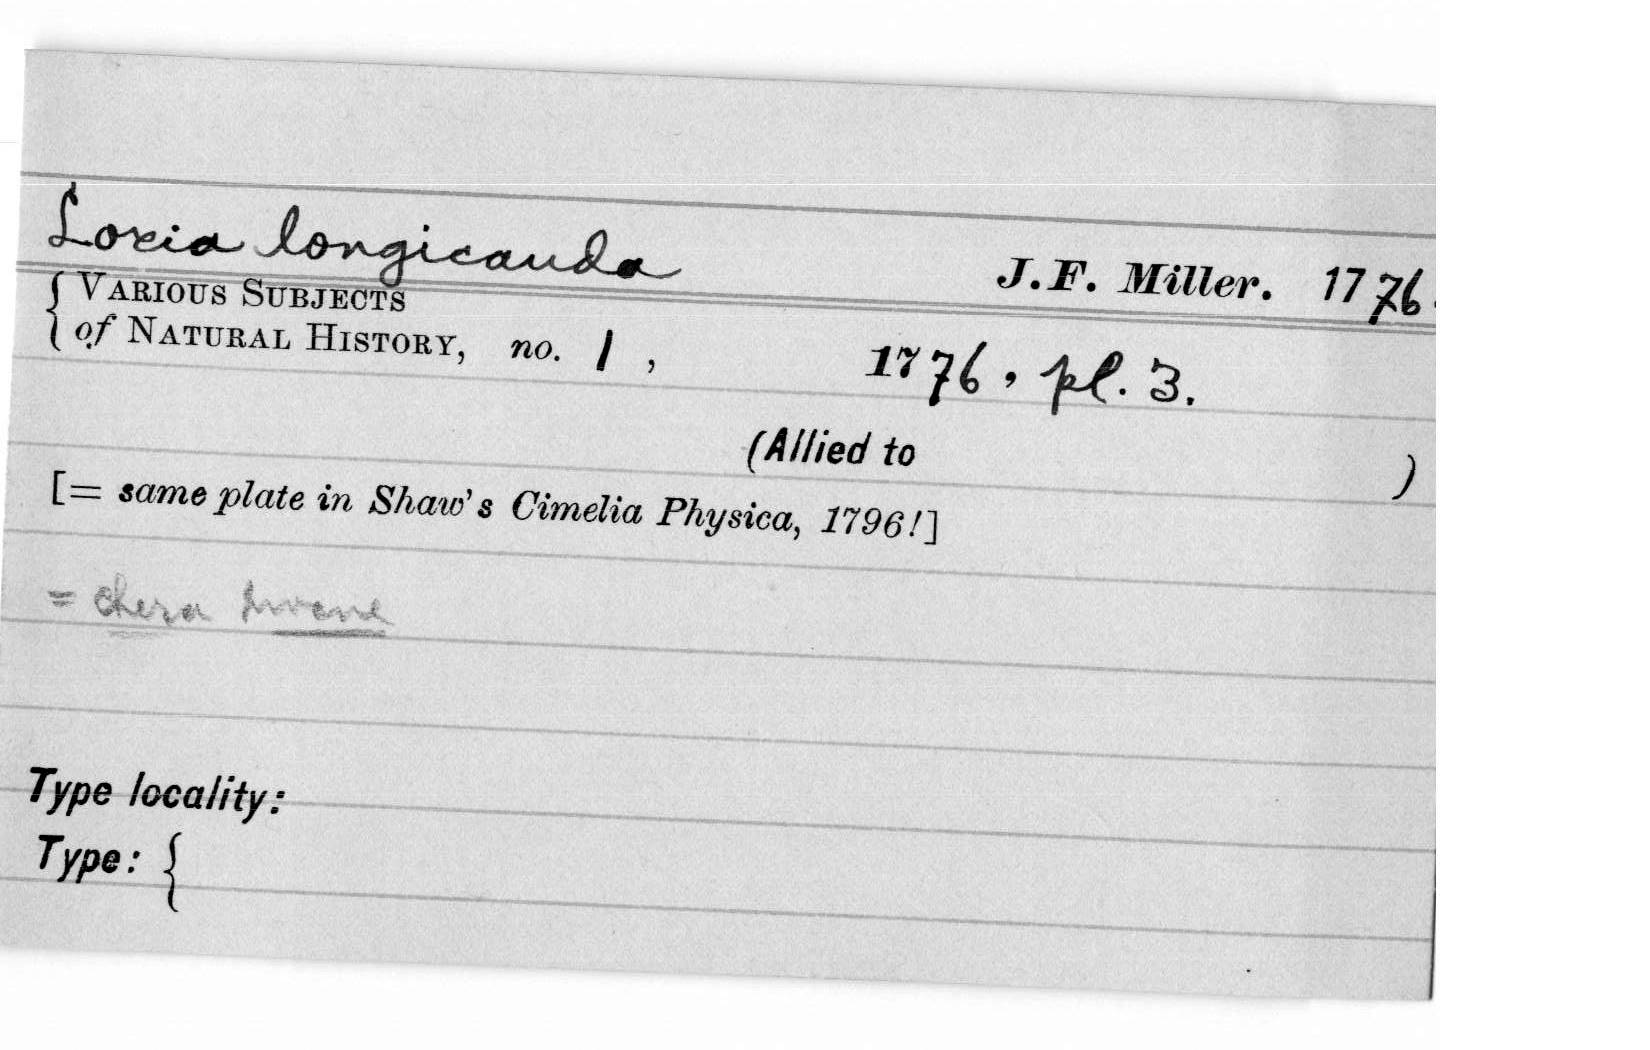 Loxia longicauda J.F. Miller. 1776.
{ VARIOUS SUBJECTS
of NATURAL HISTORY, no. 1, 1776, pl. 3.
(Allied to )
[= same plate in Shaw's Cimelia Physica, 1796!]
= Chera
Type locality:
Type: {